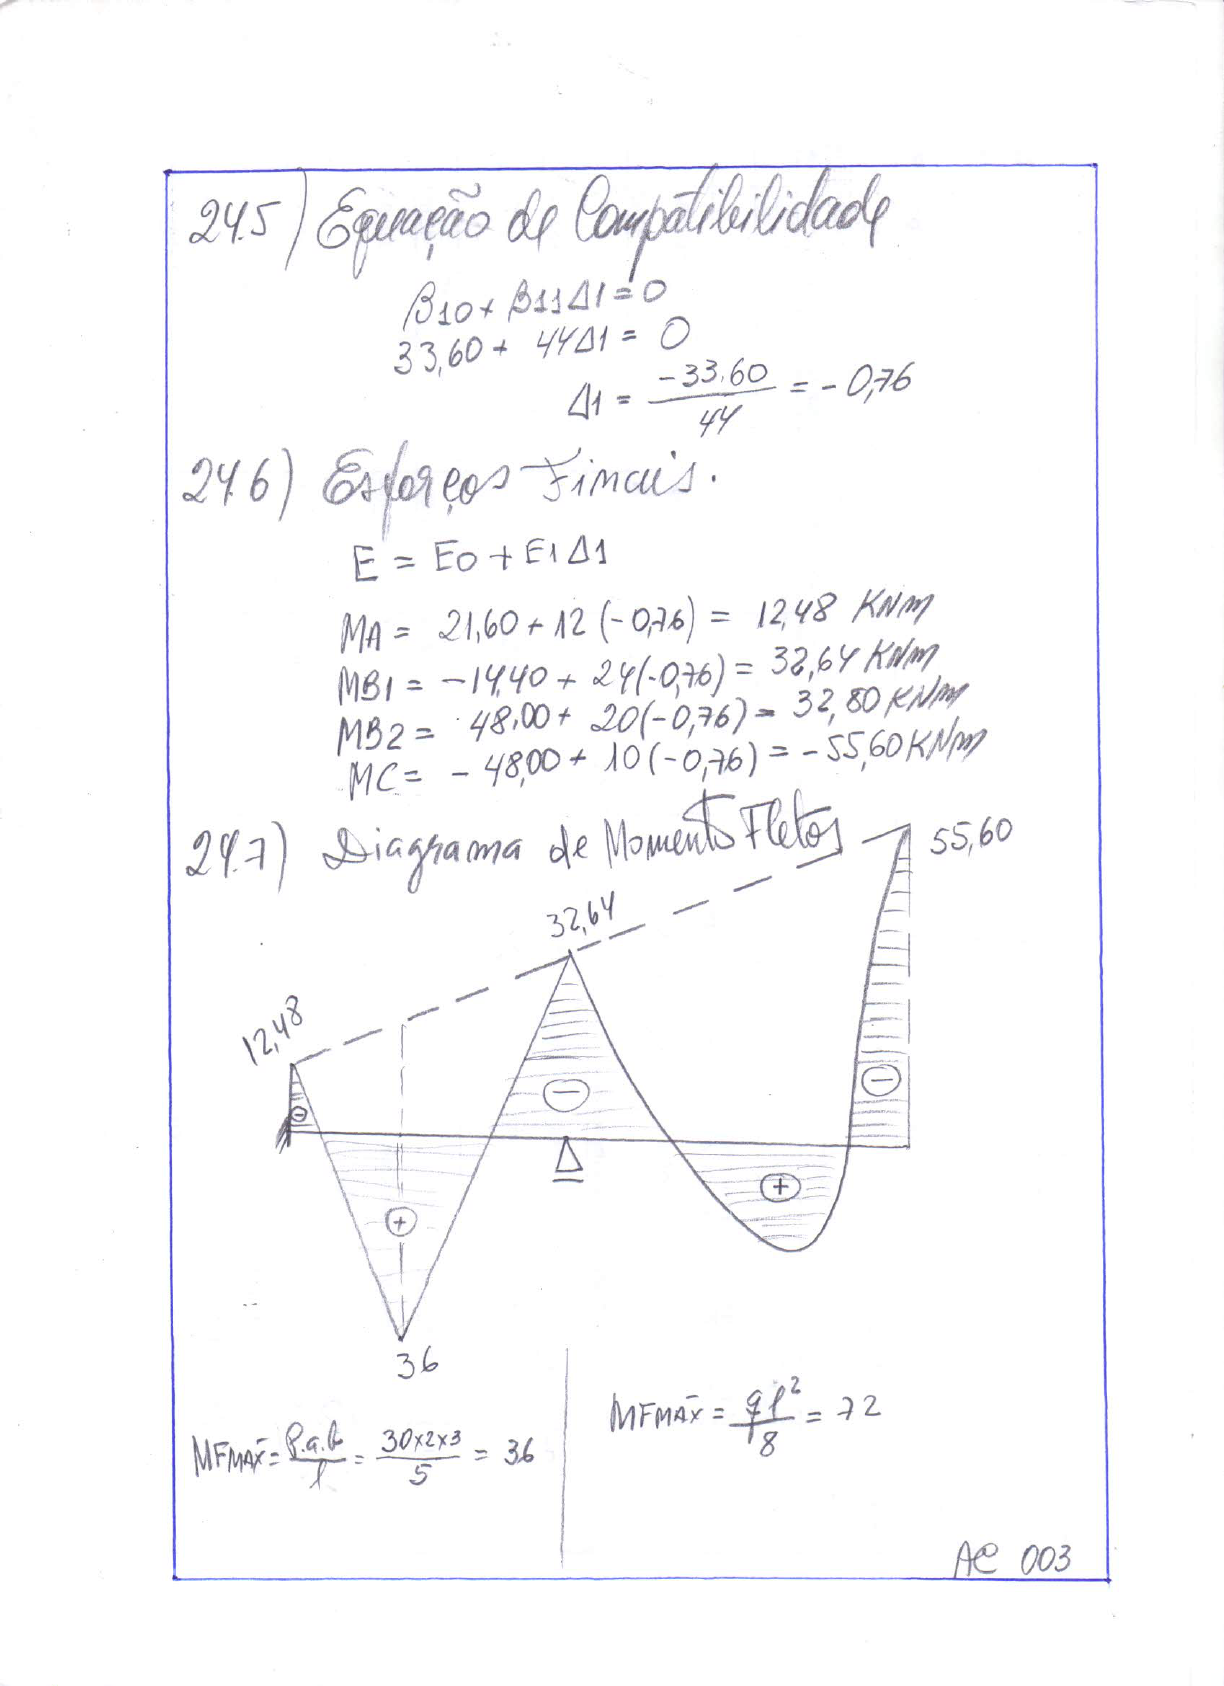 24.5) Equação de Compatibilidade
β10 + β11Δ1 = 0
33,60 + 44Δ1 = 0
Δ1 = -33.60 / 44 = -0,76
24.6) Esforços Finais.
E = E0 + E1Δ1
MA = 21,60 + 12 (-0,76) = 12,48 KNm
MB1 = -14,40 + 24(-0,76) = 32,64 KNm
MB2 = 48,00 + 20(-0,76) = 32,80 KNm
MC = - 48,00 + 10(-0,76) = -55,60 KNm
24.7) Diagrama de Momento Fletos
55,60
32,64
12,48
-
-
-
+
+
36
MFMÁX = P.a.b / l = 30x2x3 / 5 = 36
MFMÁX = ql² / 8 = 72
AC 003